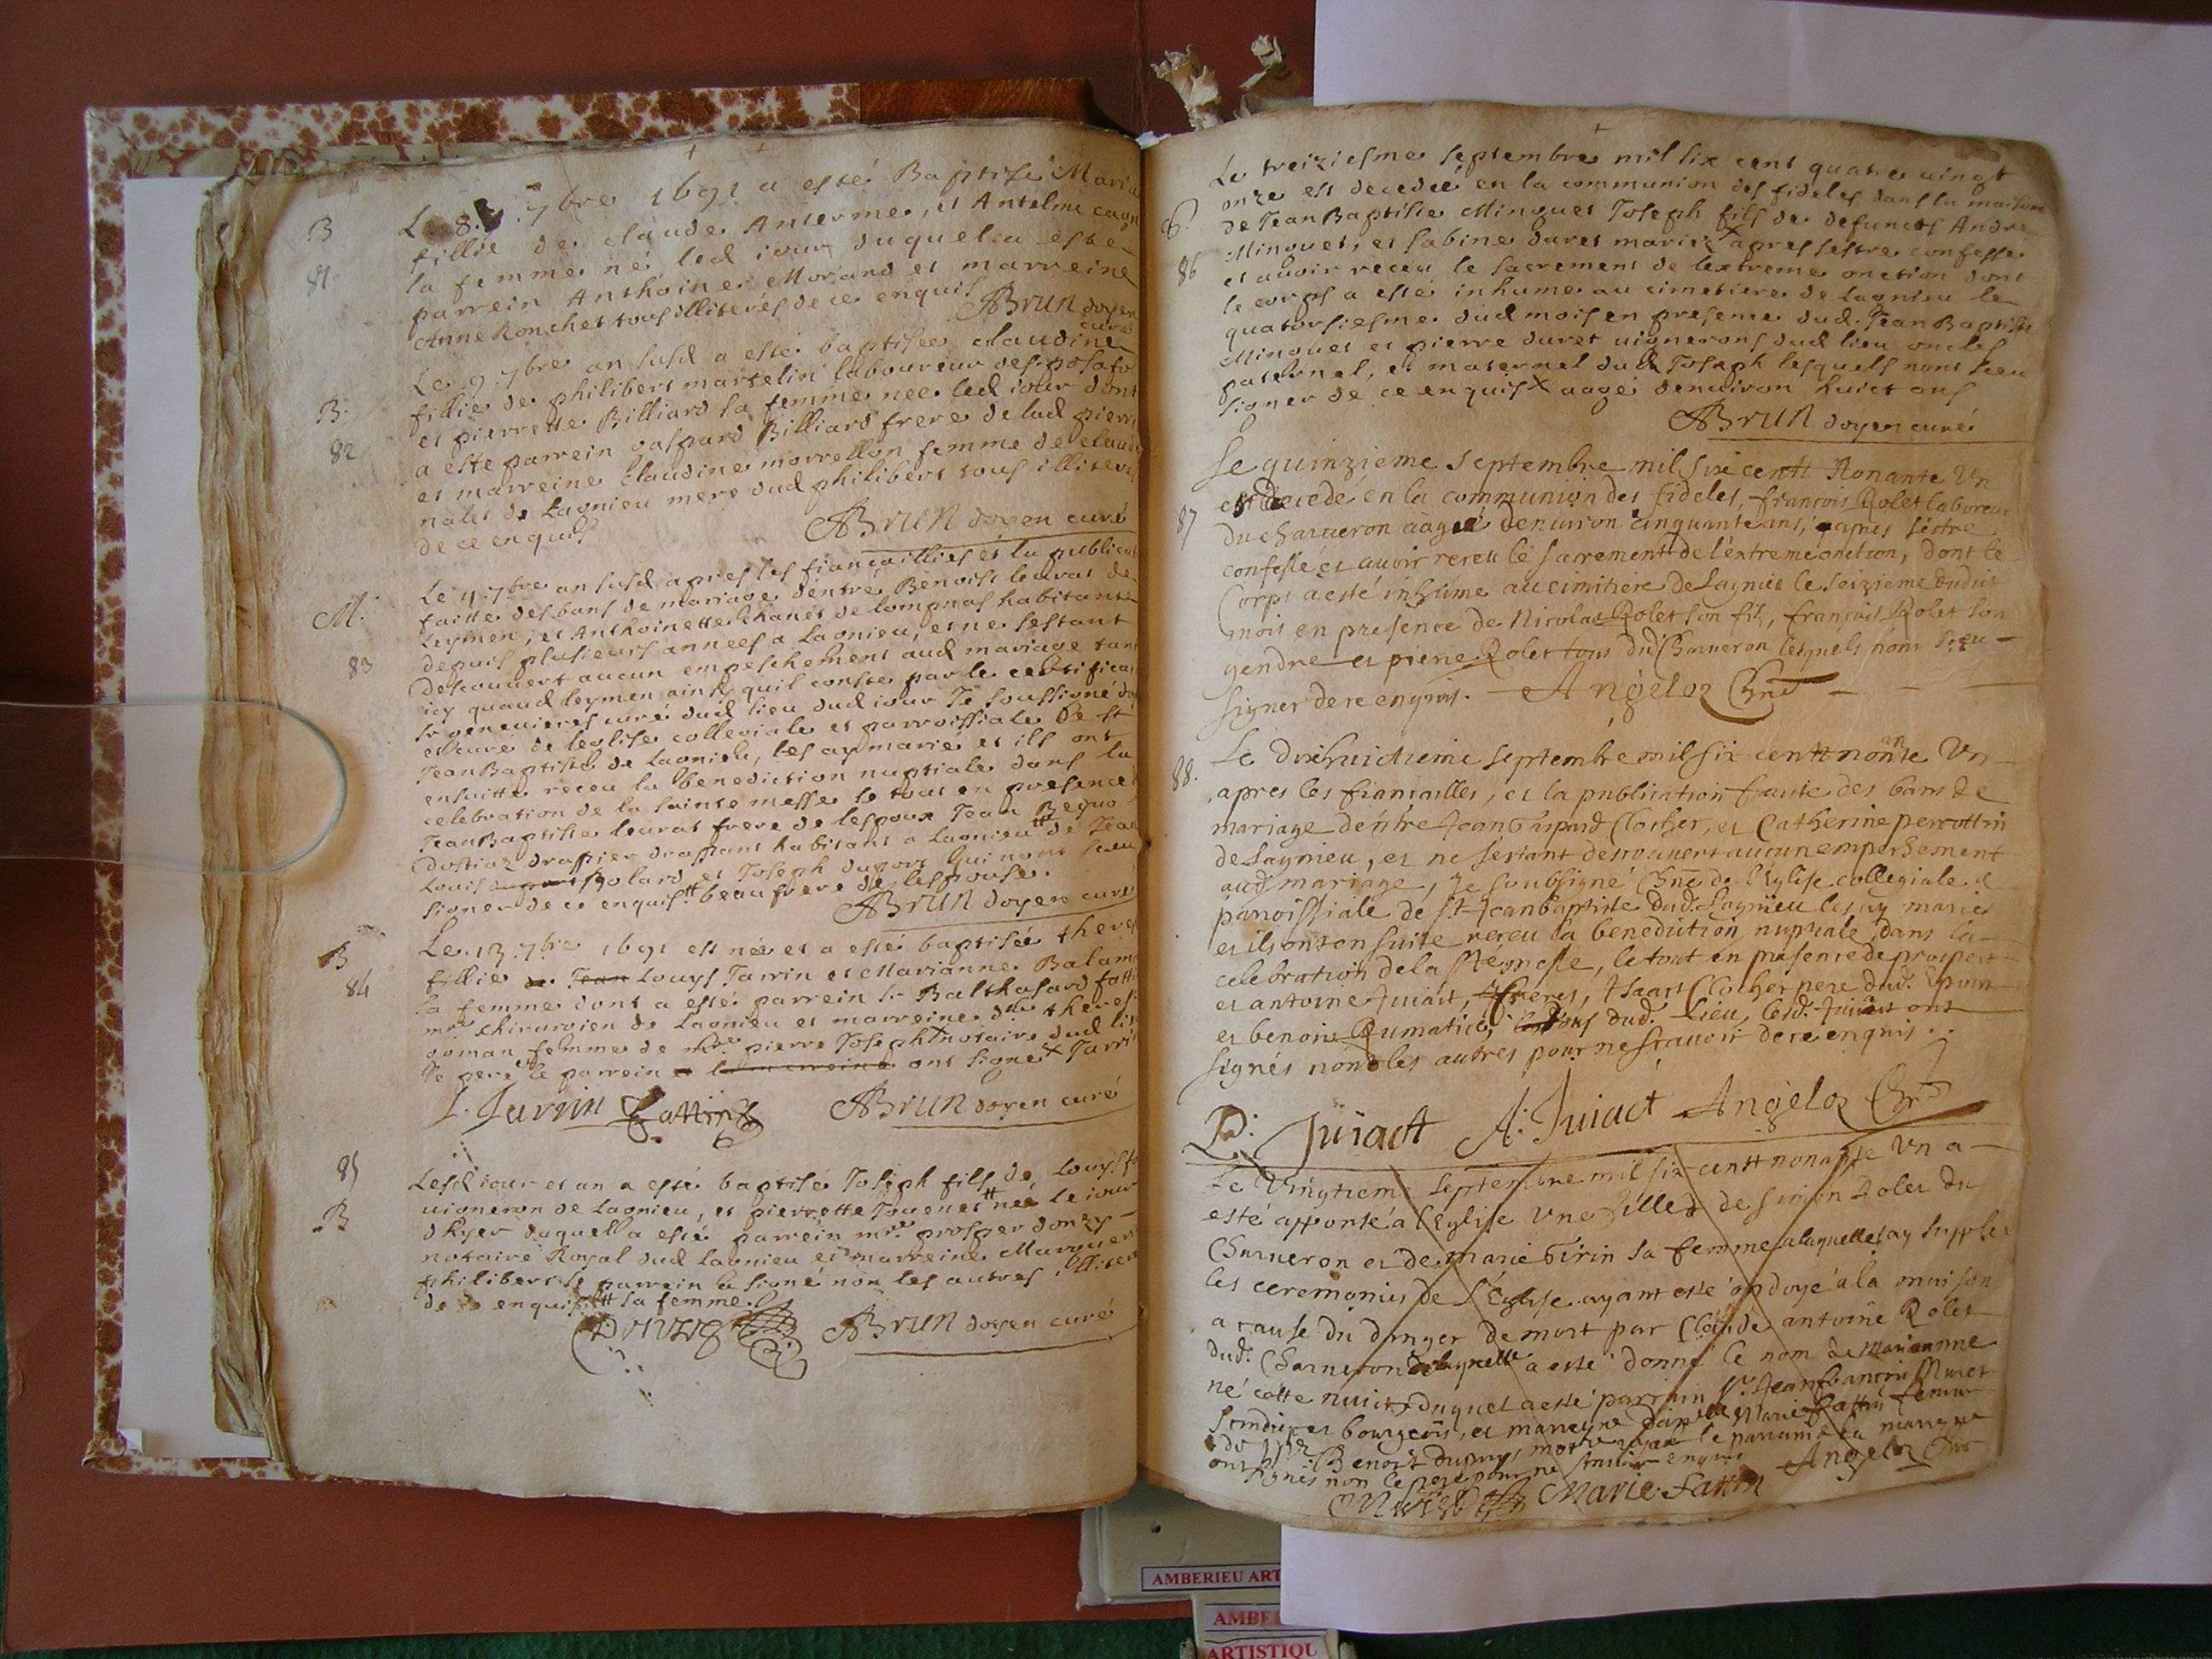 B
81
Le 8. 7bre 1691 a esté Baptisé Maria
fillie de claude Anterme, et Antelme
sa femme né led iour duquel a esté
parrein Anthoine Morand et marreine
Anne Ronchet tous illiterés de ce enquis
ABrun doyen
curé
B.
82
Le 9. 7bre an susd a esté baptisée claudine
fillie de philibert martelin laboureur de
et pierrette Billiard sa femme née led iour dont
a esté parrein gaspard Billiard frere de lad pierre
et marreine Claudine morrellon femme de claude
de Lagnieu mere dud philibert tous illiteres
de ce enquis
ABrun doyen curé
M.
83
Le 9. 7bre an susd apres les fiancaillies et la publica
faitte des bans de mariage dentre Benoist leurat de
Leymen, et Anthoinette Chanet de lompnas habitante
depuis plusieurs annees a Lagnieu, et ne sestant
descouvert aucun empeschement aud mariage tant
icy quaud leymen ainsy quil conste par le certificat
curé dud lieu dud iour Je soussigné
et curé de leglise collegiale et parroissiale de st
Jean Baptiste de Lagnieu, les ay marié et ils ont
ensuitte receu la benediction nuptiale dans la
celebration de la sainte messe le tout en presence
Jean Baptiste leurat frere de lespoux Jean
drappier drappant habitant a Lagnieu de Jean
Louis Bolard et Joseph dugort qui nont sceu
signer de ce enquis beaufrere de lespouse.
ABrun doyen curé
B
84
Le 13. 7bre 1691 est née et a esté baptisée there
fillie de Jean Louys Jarrin et Marianne Balam
sa femme dont a esté parrein sr Balthasard fatti
mre chirurgien de Lagnieu et marreine dlle theres
goman femme de mre pierre Joseph notaire dud lieu
le pere le parrein et la marreine ont signé Jarri
L. Jarrin Fattin ABrun doyen curé
85
B
Lesd iour et an a esté baptisé Joseph fils de Louys
uigneron de Lagnieu, et pierrette Jouenet née le iour
dhyer duquel a esté parrein mre prosper donzy
notaire Royal dud Lagnieu et marreine Marguer
philibert le parrein a signé non les autres illiteré
de ce enquis sa femme.
Donzy ABrun doyen curé
Le treiziesme septembre mil six cent quatre uingt
onze est decedeé en la communion des fideles dans la maison
6.
de Jean Baptiste Minguet Joseph fils de defuncts André
Minguet, et sabine duret mariez apres sestre confessé
86
et auoir receu le sacrement de lextreme onction dont
le corps a esté inhumé au cimetiere de Lagnieu le
quatorsiesme dud mois en presence dud. Jean Baptiste
Minguet et pierre duret uignerons dud lieu oncles
paternel, et maternel dud Joseph lesquels nont sceu
signer de ce enquis aagé denuiron huict ans
ABrun doyen curé
Le quinzieme septembre mil six centt Nonante Un
est decedé en la communion des fideles, francois Rolet laboreur
87
du charueron aagé denuiron cinquante ans, apres s'estre
confessé et auoir receu le sacrement de l'extreme onction, dont le
Corps a esté inhumé au cimitiere de Lagnieu le seizieme dudit
mois en presence de Nicolas Rolet son fils, francois Rolet son
gendre et pierre Rolet tous dud Charueron lesquels n'ont sceu
signer de ce enquis. Angeloz Chne
88.
Le dixhuictieme septembre mil six centt nonante Un
apres les fiancailles, et la publication faitte des bans de
mariage dentre Jean Gaspard Clocher, et Catherine perrottin
de Lagnieu, et ne sestant descouvert aucun empeschement
aud mariage, Je soubsigné Chne de l'Eglise collegiale &
paroissiale de st Jean baptiste dud. Lagnieu les ay mariés
et ils ont en suite receu la benediction nuptiale dans la
celebration de la ste messe, le tout en presence de prosper
et antoine Juiact, freres, Isaac Clocher pere dud. Epoux
et benoist Rumatier, tous dud. lieu, lesd. Juiact ont
signés non les autres pour ne scauoir de ce enquis.
P. Juiactt A. Juiact Angeloz Chne
Le Vingtieme septembre mil six centt nonante Un a
esté apporté a l'Eglise une fille de simon Rolet du
Charueron et de marie Girin sa femme a laquelle iay supplée
les ceremonies de l'Eglise ayant esté ondoyé a la maison
a cause du danger de mort par Claude antoine Rolet
dud. Charueron a laquelle a esté donné le nom de marianne
né cette nuict, duquel a esté parrain sr. Jean francois Muret
scindic et bourgeois, et marreyne damlle Marie fattin femme
de sr Benoit dupuys le parrain & la marreyne
ont signés non le pere pour ne scauoir enquis Angeloz Chne
Muret Marie fattin
AMBERIEU ART
AMBE
ARTISTIQU